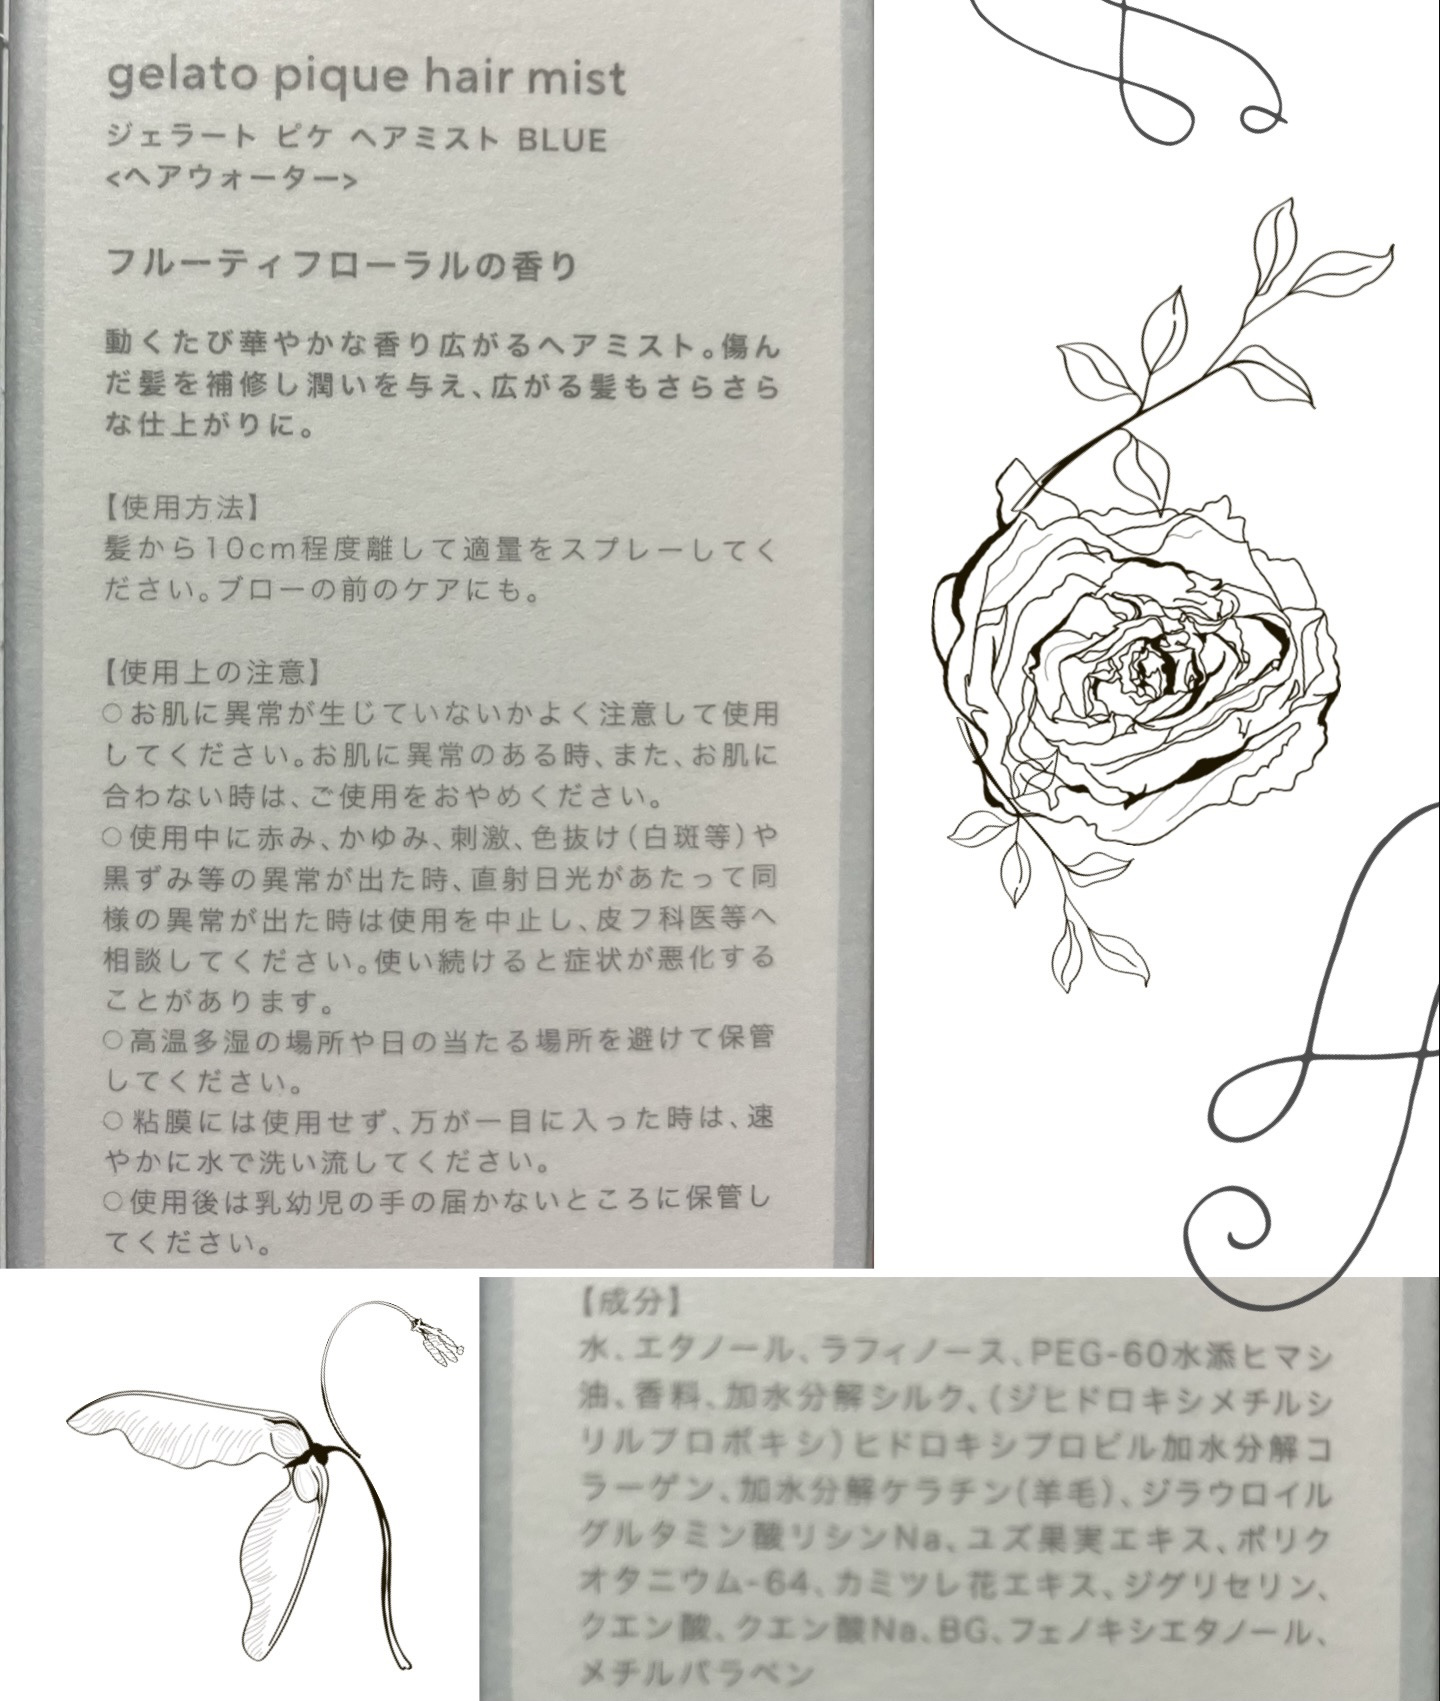 gelato pique hair mist
ジェラート ピケ ヘアミスト BLUE
<ヘアウォーター>
フルーティフローラルの香り
動くたび華やかな香り広がるヘアミスト。傷ん
だ髪を補修し潤いを与え、広がる髪もさらさら
な仕上がりに。
【使用方法】
髪から10cm程度離して適量をスプレーしてく
ださい。ブローの前のケアにも。
【使用上の注意】
○お肌に異常が生じていないかよく注意して使用
してください。お肌に異常のある時、また、お肌に
合わない時は、ご使用をおやめください。
○使用中に赤み、かゆみ、刺激、色抜け(白斑等)や
黒ずみ等の異常が出た時、直射日光があたって同
様の異常が出た時は使用を中止し、皮フ科医等へ
相談してください。使い続けると症状が悪化する
ことがあります。
○高温多湿の場所や日の当たる場所を避けて保管
してください。
○粘膜には使用せず、万が一目に入った時は、速
やかに水で洗い流してください。
○使用後は乳幼児の手の届かないところに保管し
てください。
【成分】
水、エタノール、ラフィノース、PEG-60水添ヒマシ
油、香料、加水分解シルク、(ジヒドロキシメチルシ
リルプロポキシ)ヒドロキシプロピル加水分解コ
ラーゲン、加水分解ケラチン(羊毛)、ジラウロイル
グルタミン酸リシンNa、ユズ果実エキス、ポリク
オタニウム-64、カミツレ花エキス、ジグリセリン、
クエン酸、クエン酸Na、BG、フェノキシエタノール、
メチルパラベン